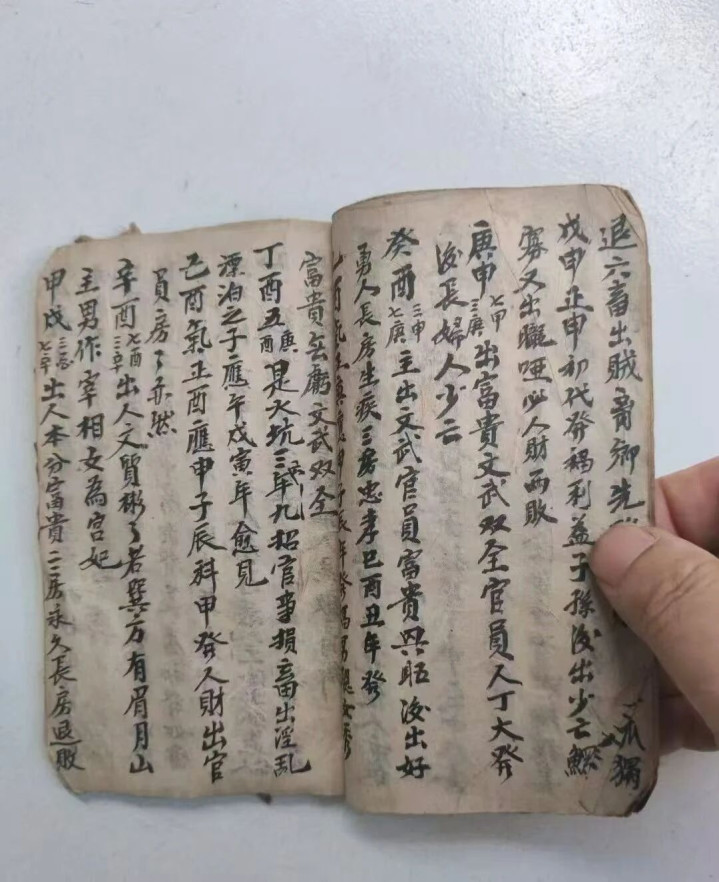 退六畜出賊
戊申正申初代發禍利益子孫後出少亡鰥
寡又出啞必人財両敗
庚申七甲三庚出富貴文武双全官員人丁大發
後長婦人少亡
癸酉三申七庚主出文武官員富貴興旺後出好
勇人長房生疾三房忠孝巳酉丑年發
富貴 文武双全
丁酉五庚酉是大坑三年九招官事損畜出淫乱
漂泊之子應午戌寅年愈見
己酉氣正酉應申子辰科甲發人財出官
員房了亦然
辛酉七酉三辛出人文質彬了若巽方有眉月山
主男作宰相女為宮妃
甲戌七辛出人本分富貴二三房永久長房退敗